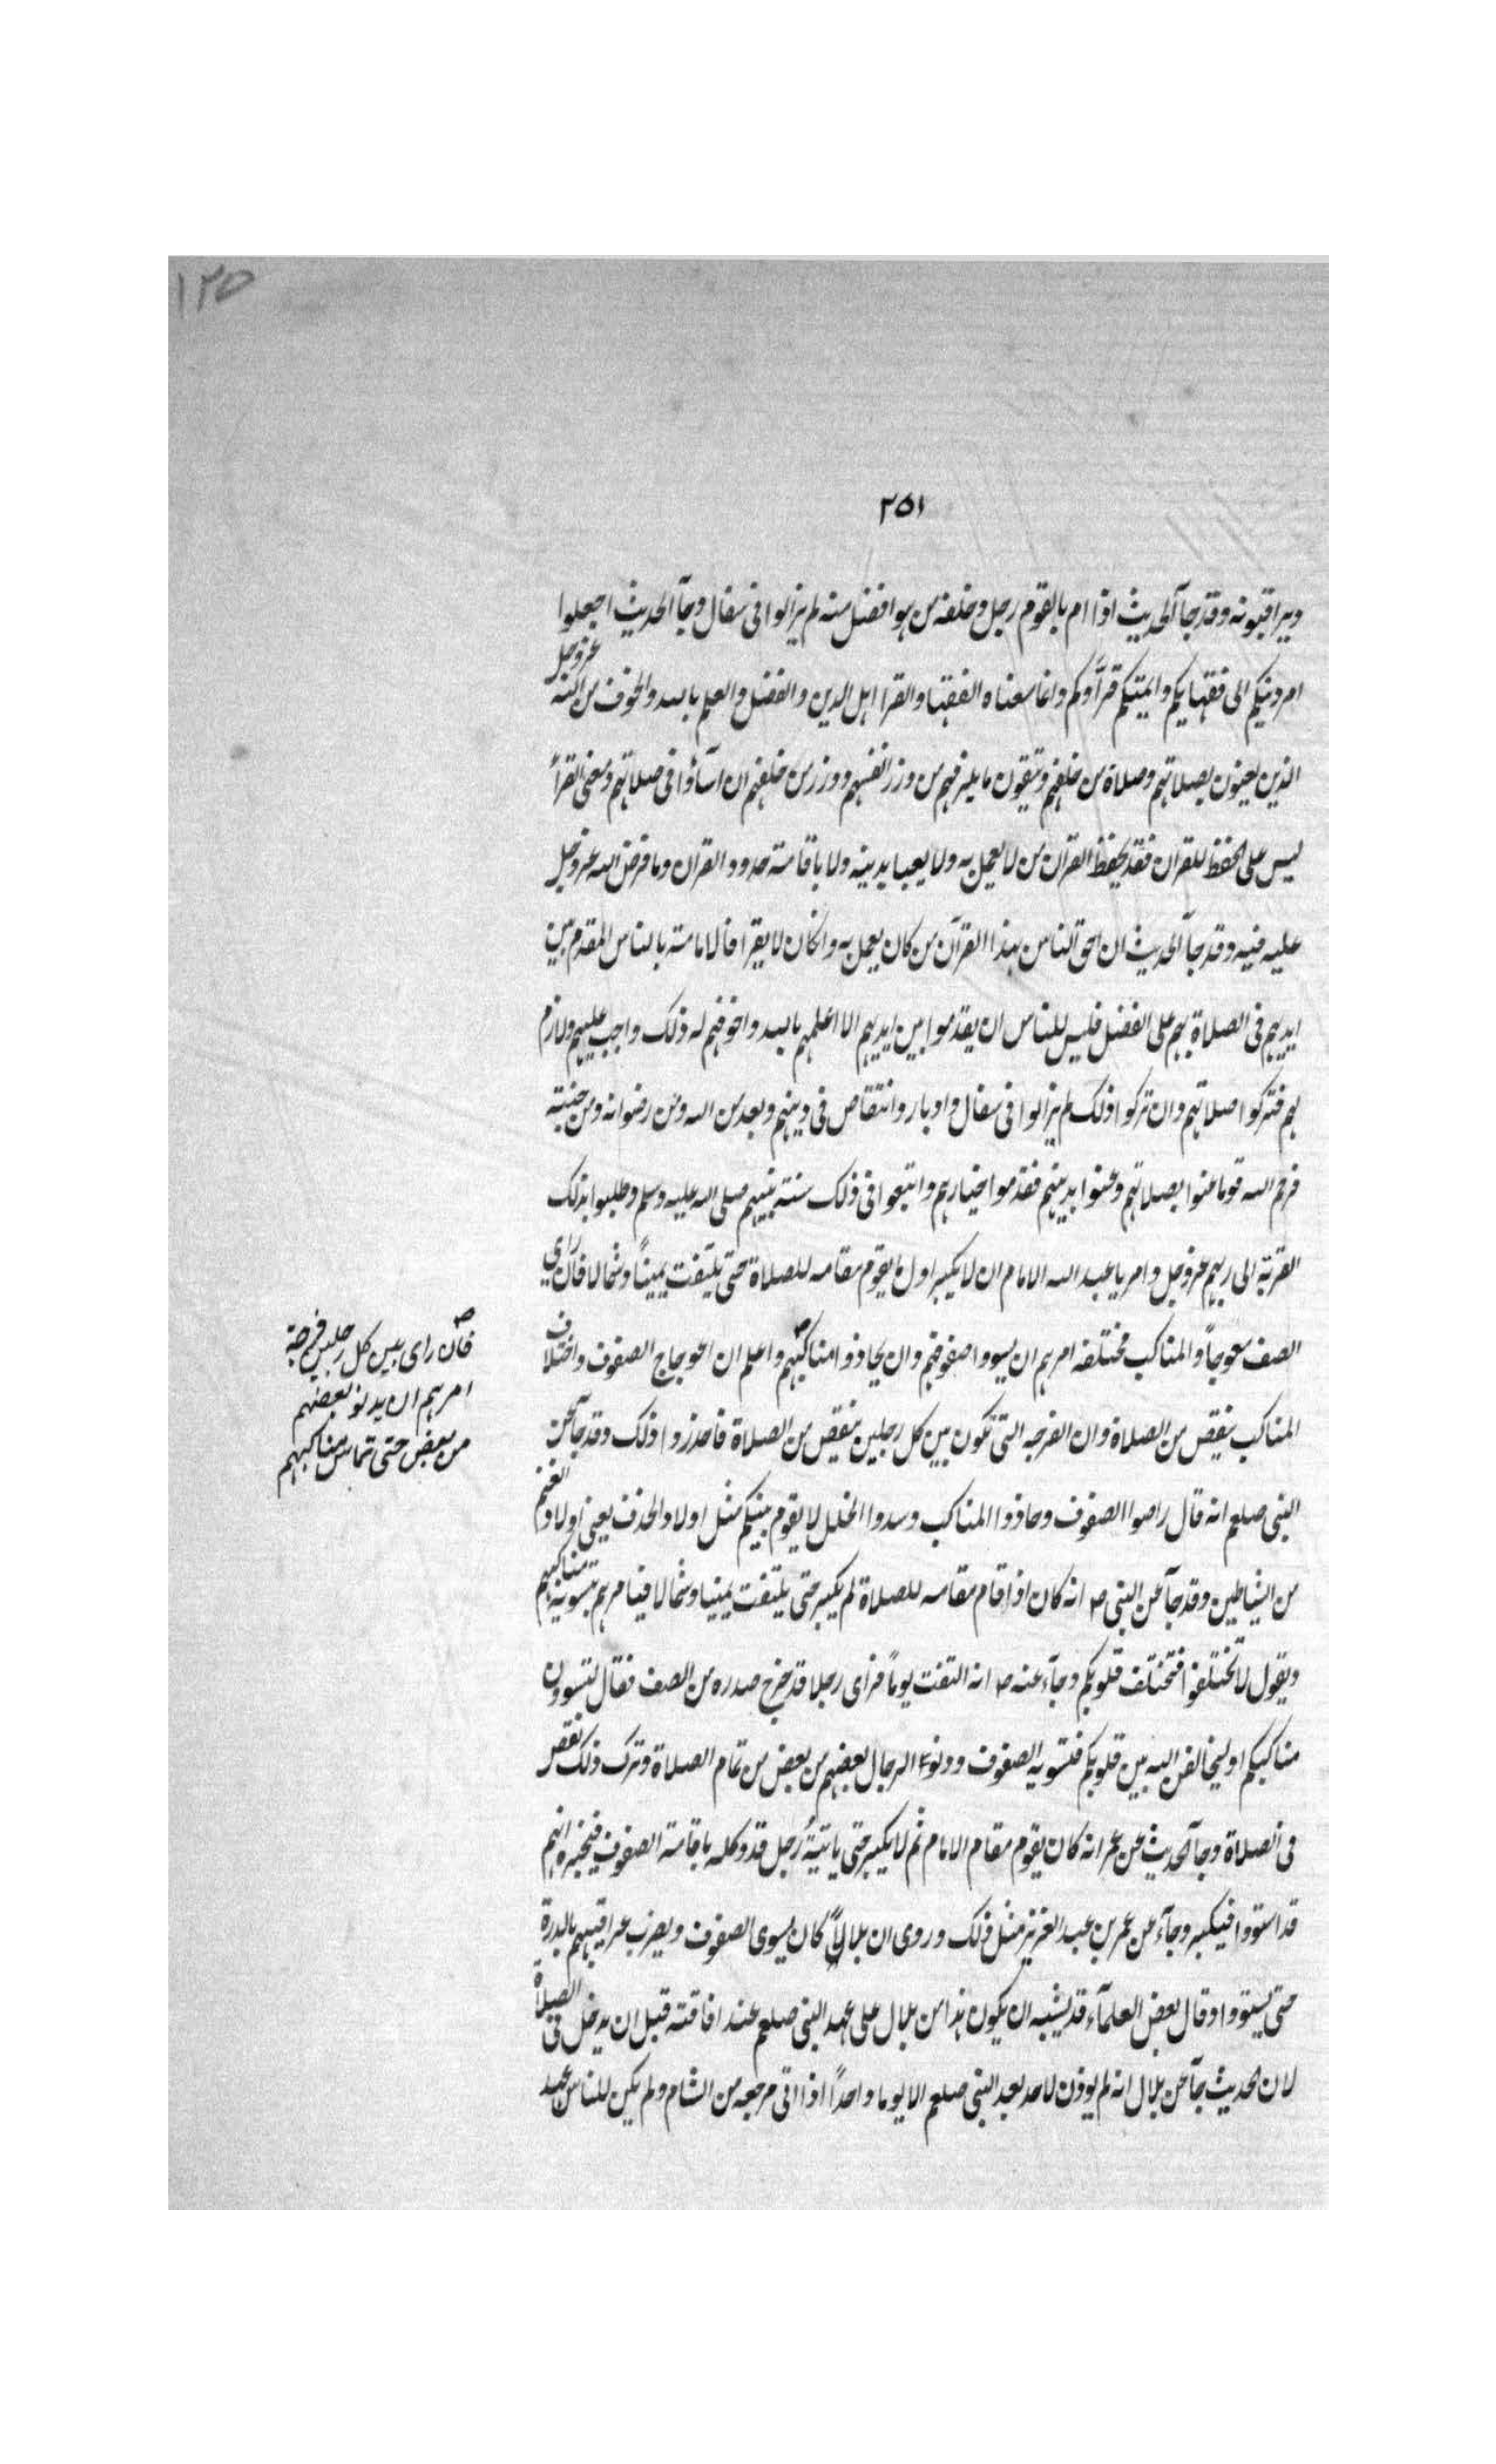 ١٢٥
٢٥١
ويراقبونه وقد جآ الحديث اذا ام بالقوم رجل وخلفه من هو افضل منه لم يزالوا فى سفال وجآ الحديث اجعلوا
امر دينكم الى فقهايكم وايمتكم قرأوكم وانما معناه الفقها والقرا اهل الدين والفضل والعلم بالله والخوف من الله عز وجل
الذين يعنون بصلاتهم وصلاة من خلفهم ويتقون ما يلزمهم من وزر انفسهم ووزر من خلفهم ان اسآؤا فى صلاتهم ومعنى القرأ
ليس على الحفظ للقران فقد يحفظ القران من لا يعمل به ولا يعبا بدينه ولا باقامته حدود القران وما فرض الله عز وجل
عليه فيه وقد جآ الحديث ان احق الناس بهذا القرآن من كان يعمل به وان كان لا يقرا فالامامته بالناس المقدم بين
ايديهم فى الصلاة بهم على الفضل فليس للناس ان يقدموا بين ايديهم الا اعلمهم بالله واخوفهم له ذلك واجب عليهم ولازم
لهم فتزكوا صلاتهم وان تركوا ذلك لم يزالوا فى سفال وادبار وانتقاص فى دينهم وبعد من الله ومن رضوانه ومن جنته
فرحم الله قوما عنوا بصلاتهم وعنوا بدينهم فقدموا خيارهم واتبعوا فى ذلك سنته نبيهم صلى الله عليه وسلم وطلبوا بذلك
القربة الى ربهم عز وجل وامر يا عبد الله الامام ان لا يكبر اول ما يقوم مقامه للصلاة حتى يلتفت يمينًا وشمالا فان رأى
الصف معوجاً والمناكب مختلفه امرهم ان يسووا صفوفهم وان يحاذوا مناكبهم ؐ واعلم ان اعوجاج الصفوف واختلاف
المناكب ينقص من الصلاة وان الفرجه التى تكون بين كل رجلين منقص من الصلاة فاحذروا ذلك وقد جآ عن
النبى صلعم انه قال راصوا الصفوف وحاذوا المناكب وسدوا الخلل لا يقوم بينكم مثل اولاد الحذف يعنى اولاد الغنم
من الشياطين وقد جآ عن النبى ص انه كان اذا قام مقامه للصلاة لم يكبر حتى يلتفت يمينا وشمالا فيامرهم بتسوية مناكبهم
ويقول لا تختلفوا فتختلف قلوبكم وجآء عنه ص انه التفت يوماً فراى رجلا قد خرج صدره من الصف فقال لتسوون
مناكبكم او ليخالفن الله بين قلوبكم فتسويه الصفوف ودنوء الرجال بعضهم من بعض من تمام الصلاة وترك ذلك نقص
فى الصلاة وجآ الحديث عن عمر انه كان يقوم مقام الامام ثم لا يكبر حتى ياتيه رجل قد وكله باقامته الصفوف فيخبره انهم
قد استووا فيكبر وجآء عن عمر بن عبد العزيز مثل ذلك وروى ان بلالاً كان يسوى الصفوف ويضرب عراقيبهم بالدرة
حتى يستووا وقال بعض العلمآء قد يشبه ان يكون هذا من بلال على عهد النبى صلعم عند اقامته قبل ان يدخل فى الصلاة
لان الحديث جآ عن بلال انه لم يوذن لاحد بعد النبى صلعم الا يوما واحداً اذا اتى مرجعه من الشام ولم يكن للناس عهد
ؐ
فان راى بين كل رجلين فرجة
امرهم ان يدنو بعضهم
من بعض حتى تماس مناكبهم